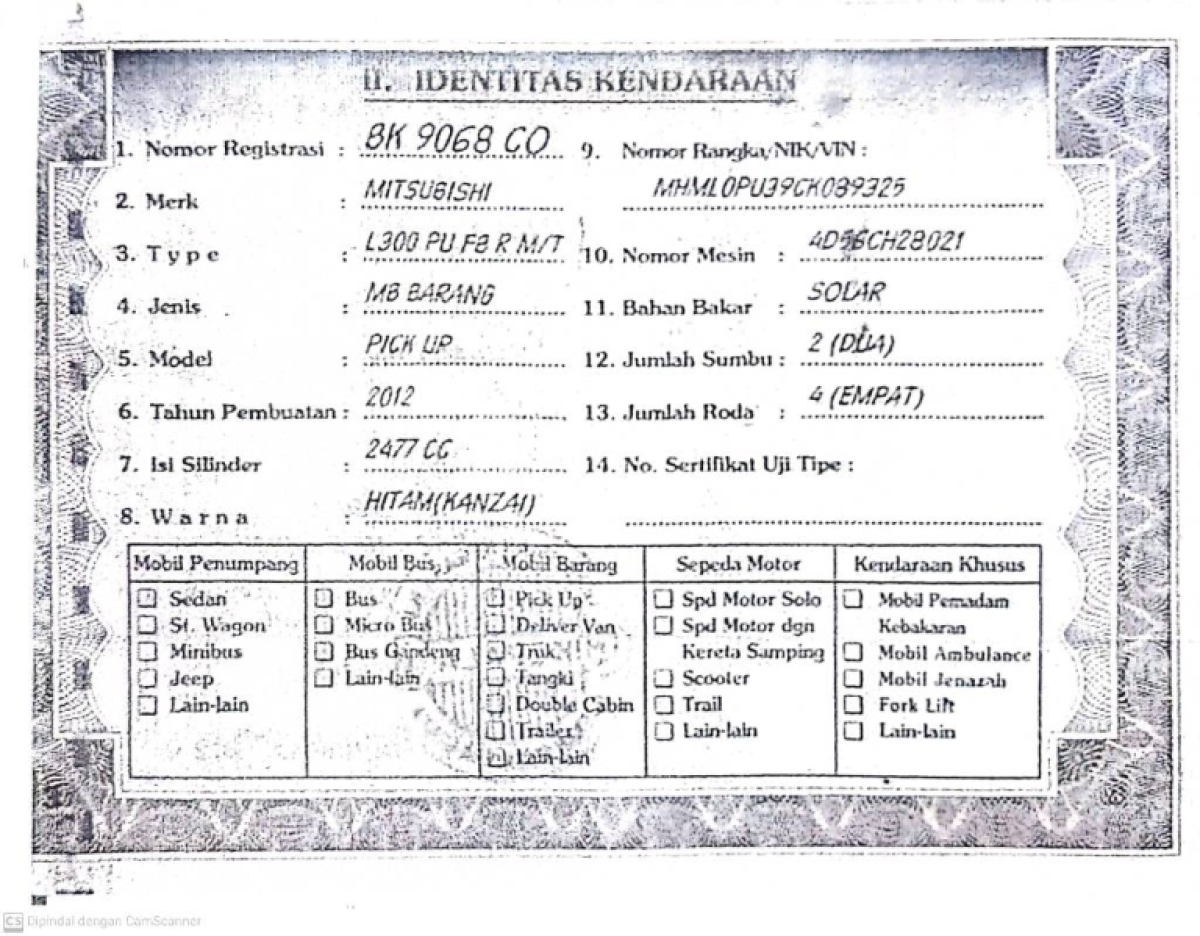 II. IDENTITAS KENDARAAN
1. Nomor Registrasi : BK 9068 CO
2. Merk : MITSUBISHI
3. Type : L300 PU FB R M/T
4. Jenis : MB BARANG
5. Model : PICK UP
6. Tahun Pembuatan : 2012
7. Isi Silinder : 2477 CC
8. Warna : HITAM(KANZAI)
9. Nomor Rangka/NIK/VIN :
MHML0PU39CK089325
10. Nomor Mesin : 4D56CH28021
11. Bahan Bakar : SOLAR
12. Jumlah Sumbu : 2 (DUA)
13. Jumlah Roda : 4 (EMPAT)
14. No. Sertifikat Uji Tipe :
Mobil Penumpang
Sedan
St. Wagon
Minibus
Jeep
Lain-lain
Mobil Bus
Bus
Micro Bus
Bus Gandeng
Lain-lain
Mobil Barang
Pick Up
Deliver Van
Truk
Tangki
Double Cabin
Trailer
Lain-lain
Sepeda Motor
Spd Motor Solo
Spd Motor dgn
Kereta Samping
Scooter
Trail
Lain-lain
Kendaraan Khusus
Mobil Pemadam
Kebakaran
Mobil Ambulance
Mobil Jenazah
Fork Lift
Lain-lain
CS Dipindai dengan CamScanner